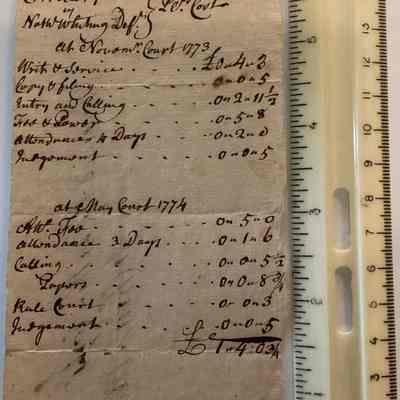 vs
Nathl Whiting Deft Pet Cost
at Novemr Court 1773
Writ & Service - - £0"4"3
Copy & filing - - - 0"0"5
Entry and Calling - - - 0"2"11 1/2
Fee & Power - - - 0"5"8
Attendance 4 Days - - - 0"2"0
Judgement - - - 0"0"5
at May Court 1774
Fee - - - 0"5"0
Attendance 3 Days - - - 0"1"6
Calling - - - 0"0"5 1/2
Papers - - - 0"0"8 3/4
Rule Court - - - 0"0"3
Judgement - - - 0"0"5
£1"4"03/4
5
4
3
2
1
13
12
11
10
9
8
7
6
5
4
3
2